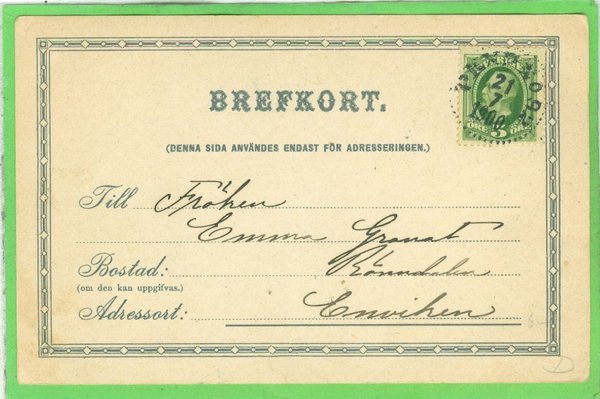 BREFKORT.
21
7
1900
ÖRE 5 ÖRE
(DENNA SIDA ANVÄNDES ENDAST FÖR ADRESSERINGEN.)
Till Fröken
Emma Granat
Bostad: Rönndalen
(om den kan uppgifvas.)
Adressort: Enviken